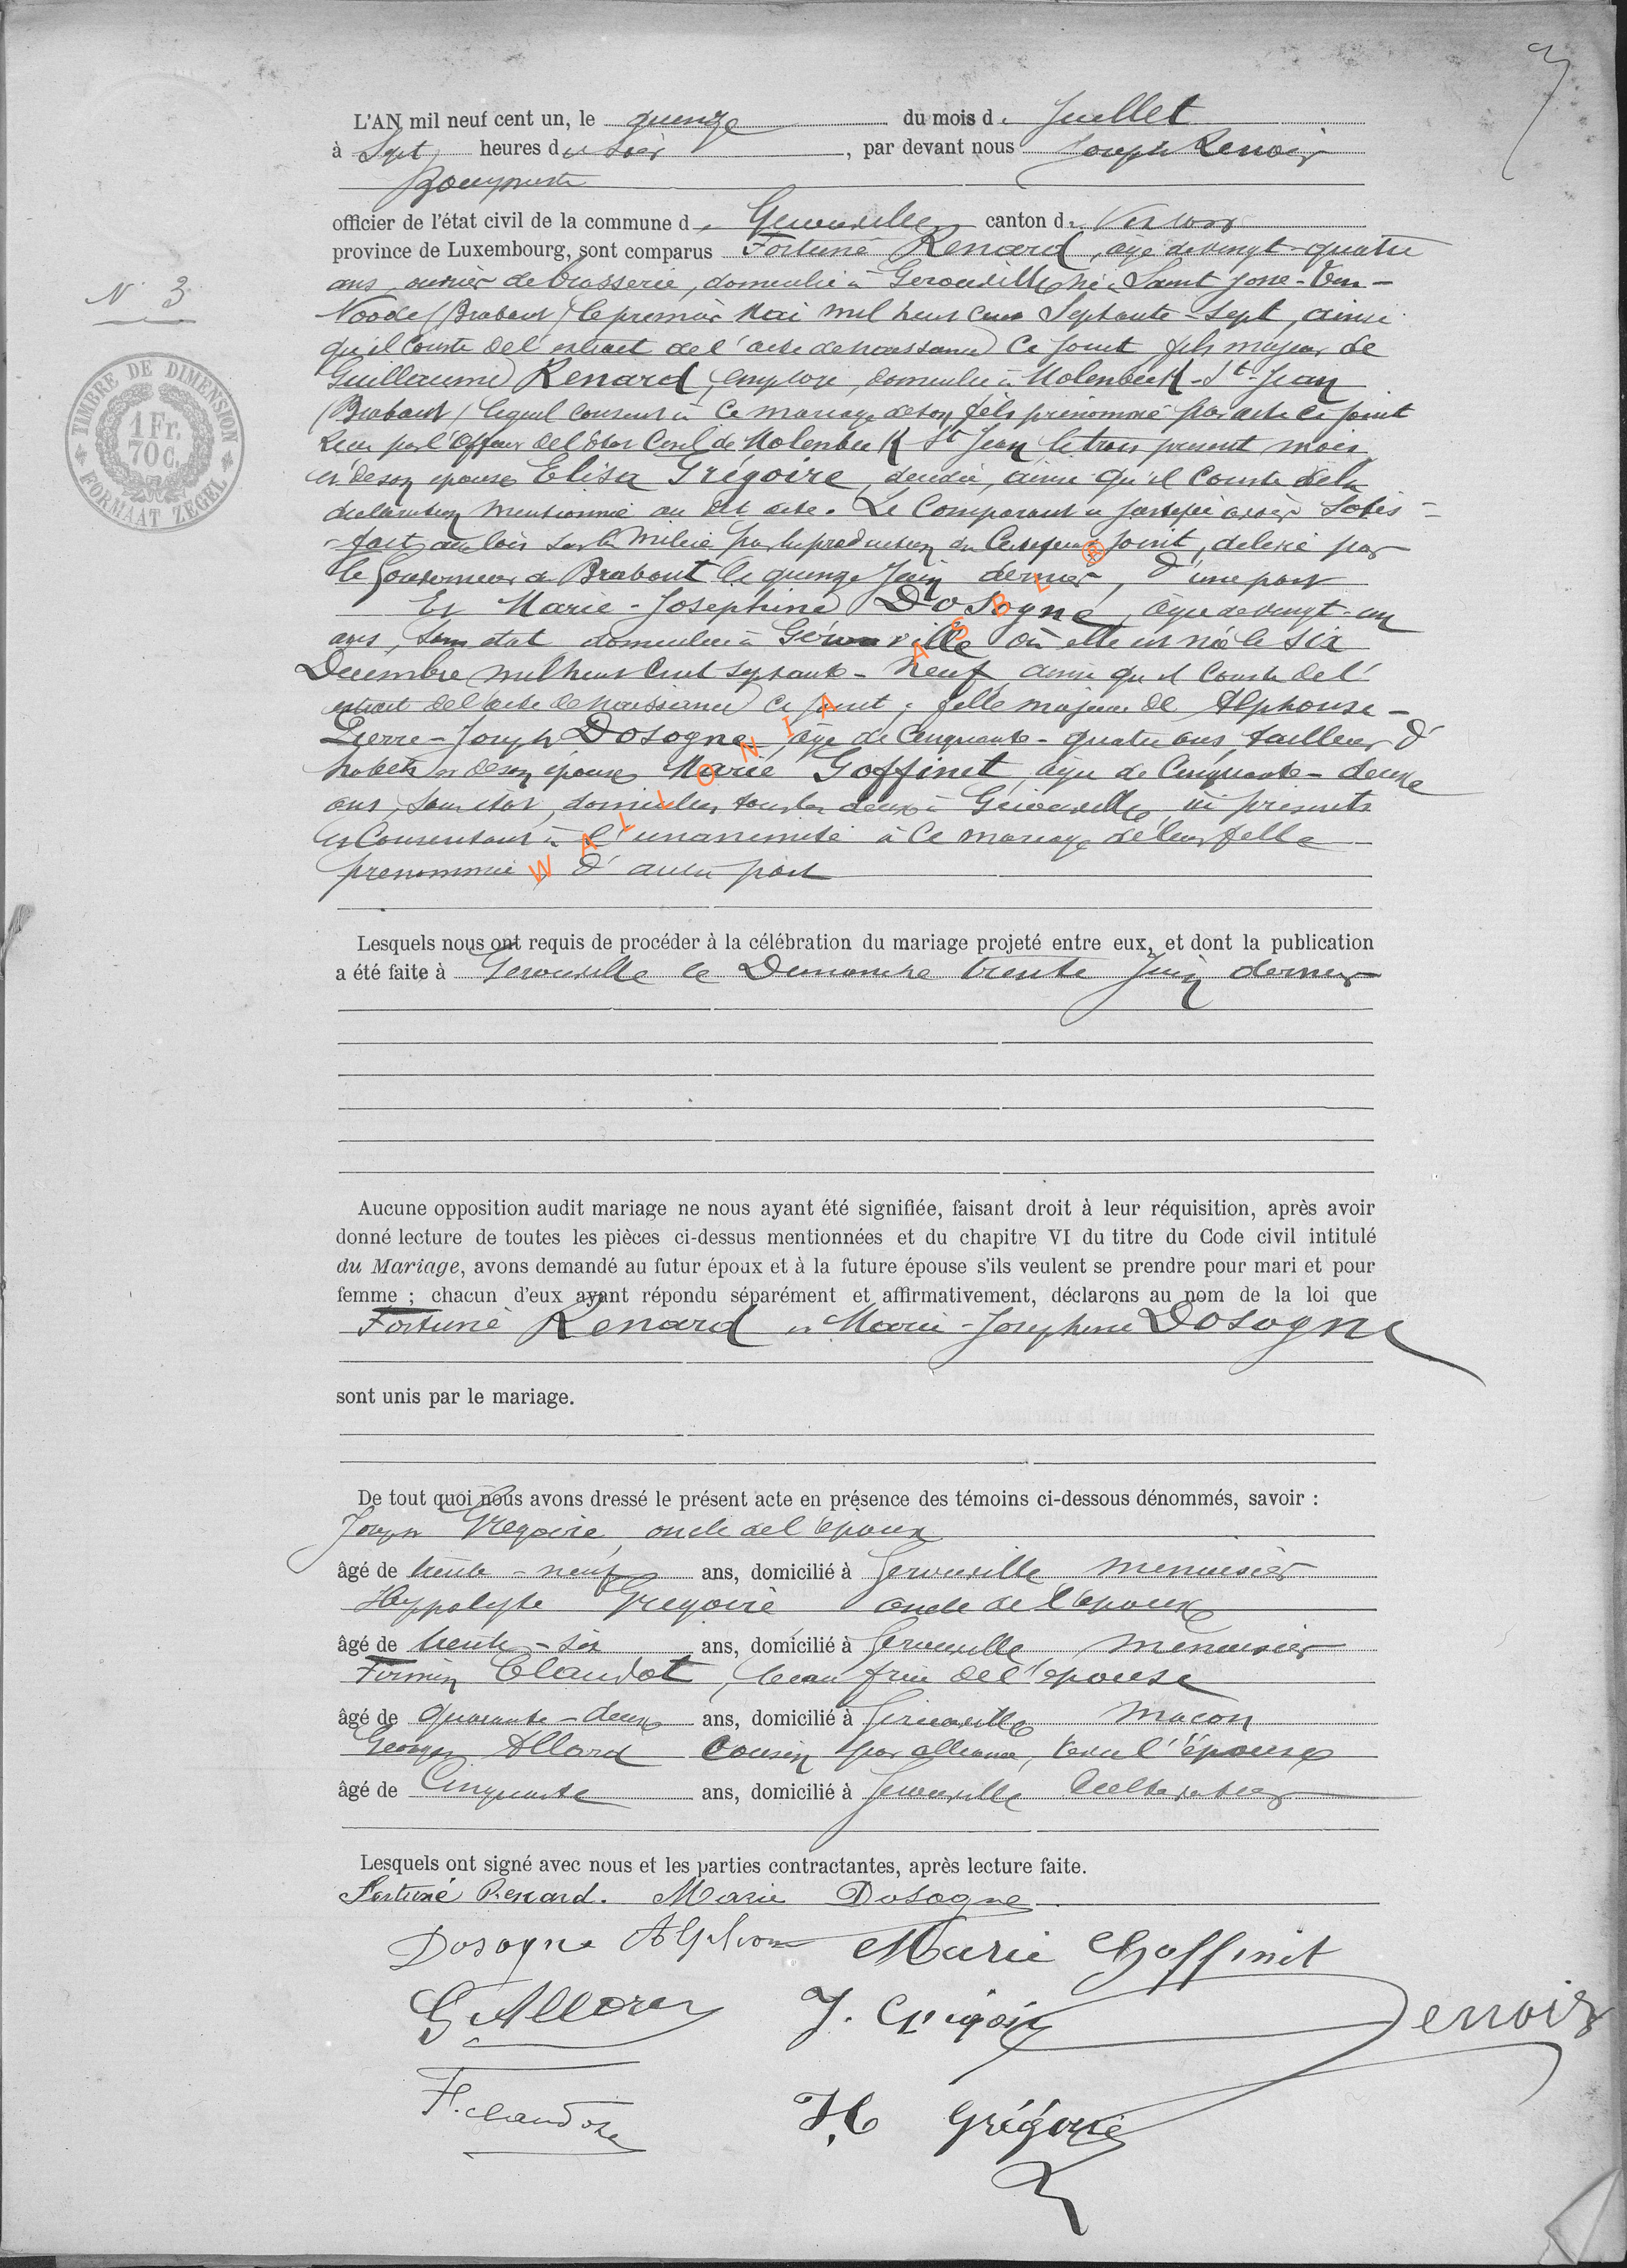 3
L'AN mil neuf cent un, le quinze du mois de Juillet
à Sept heures du Soir, par devant nous Joseph Lenoir
Bourgmestre
officier de l'état civil de la commune de Gerouville canton de Virton
province de Luxembourg, sont comparus Fortuné Renard, âgé de vingt-quatre
ans, ouvrier de brasserie, domicilié à Gerouville né à Saint Josse-ten-
N° 3
Noode (Brabant) le premier Mai mil huit cent Septante-Sept, ainsi
qu'il Conste de l'extrait de l'acte de naissance Ci joint fils majeur de
Guillaume Renard, employé, domicilié à Molenbeek-St-Jean
(Brabant) lequel consent à Ce mariage de son fils prénommé par acte Ci joint
Reçu par l'Officier de l'état Civil de Molenbeek St Jean le trois présent mois
et de son épouse Elisa Grégoire, décédée, ainsi qu'il Conste de la
déclaration mentionnée au dit acte. Le Comparant a justifié avoir Satis-
-fait aux lois sur la Milice par la production du Certificat Joint, délivré par
le Gouverneur du Brabant le quinze Juin dernier, d'une part
Et Marie-Josephine Dosogne, âgée de vingt-un
ans, Sans état domiciliée à Gérouville où elle est née le Six
Décembre mil huit Cent septante-neuf ainsi qu'il Conste de l'
extrait de l'acte de naissance Ci joint; fille majeure de Alphonse-
Pierre-Joseph Dosogne, âgé de Cinquante-quatre ans, tailleur d'
habits et de son épouse Marie Goffinet, âgée de Cinquante-deux
ans, Sans état, domiciliés tous les deux à Gérouville, ici présents
et Consentant à l'unanimité à Ce mariage de leur fille
prénommée, d'autre part
WALLONIA ASBL ®
TIMBRE DE DIMENSION
1 Fr.
70 C.
FORMAAT ZEGEL
Lesquels nous ont requis de procéder à la célébration du mariage projeté entre eux, et dont la publication
a été faite à Gerouville le Dimanche trente Juin dernier
Aucune opposition audit mariage ne nous ayant été signifiée, faisant droit à leur réquisition, après avoir
donné lecture de toutes les pièces ci-dessus mentionnées et du chapitre VI du titre du Code civil intitulé
du Mariage, avons demandé au futur époux et à la future épouse s'ils veulent se prendre pour mari et pour
femme ; chacun d'eux ayant répondu séparément et affirmativement, déclarons au nom de la loi que
Fortuné Renard et Marie-Josephine Dosogne
sont unis par le mariage.
De tout quoi nous avons dressé le présent acte en présence des témoins ci-dessous dénommés, savoir :
Joseph Grégoire, oncle de l'époux
âgé de trente-neuf ans, domicilié à Gerouville menuisier
Hyppolyte Grégoire oncle de l'époux
âgé de trente-six ans, domicilié à Gerouville menuisier
Firmin Claudot, beau frère de l'épouse
âgé de quarante-deux ans, domicilié à Gérouville maçon
Georges Allard Cousin par alliance, de l'épouse
âgé de Cinquante ans, domicilié à Gerouville Cultivateur
Lesquels ont signé avec nous et les parties contractantes, après lecture faite.
Fortuné Renard. Marie Dosogne
Dosogne Alphonse Marie Goffinet
G Allard J. Grégoire Lenoir
F. Claudot H Grégoire